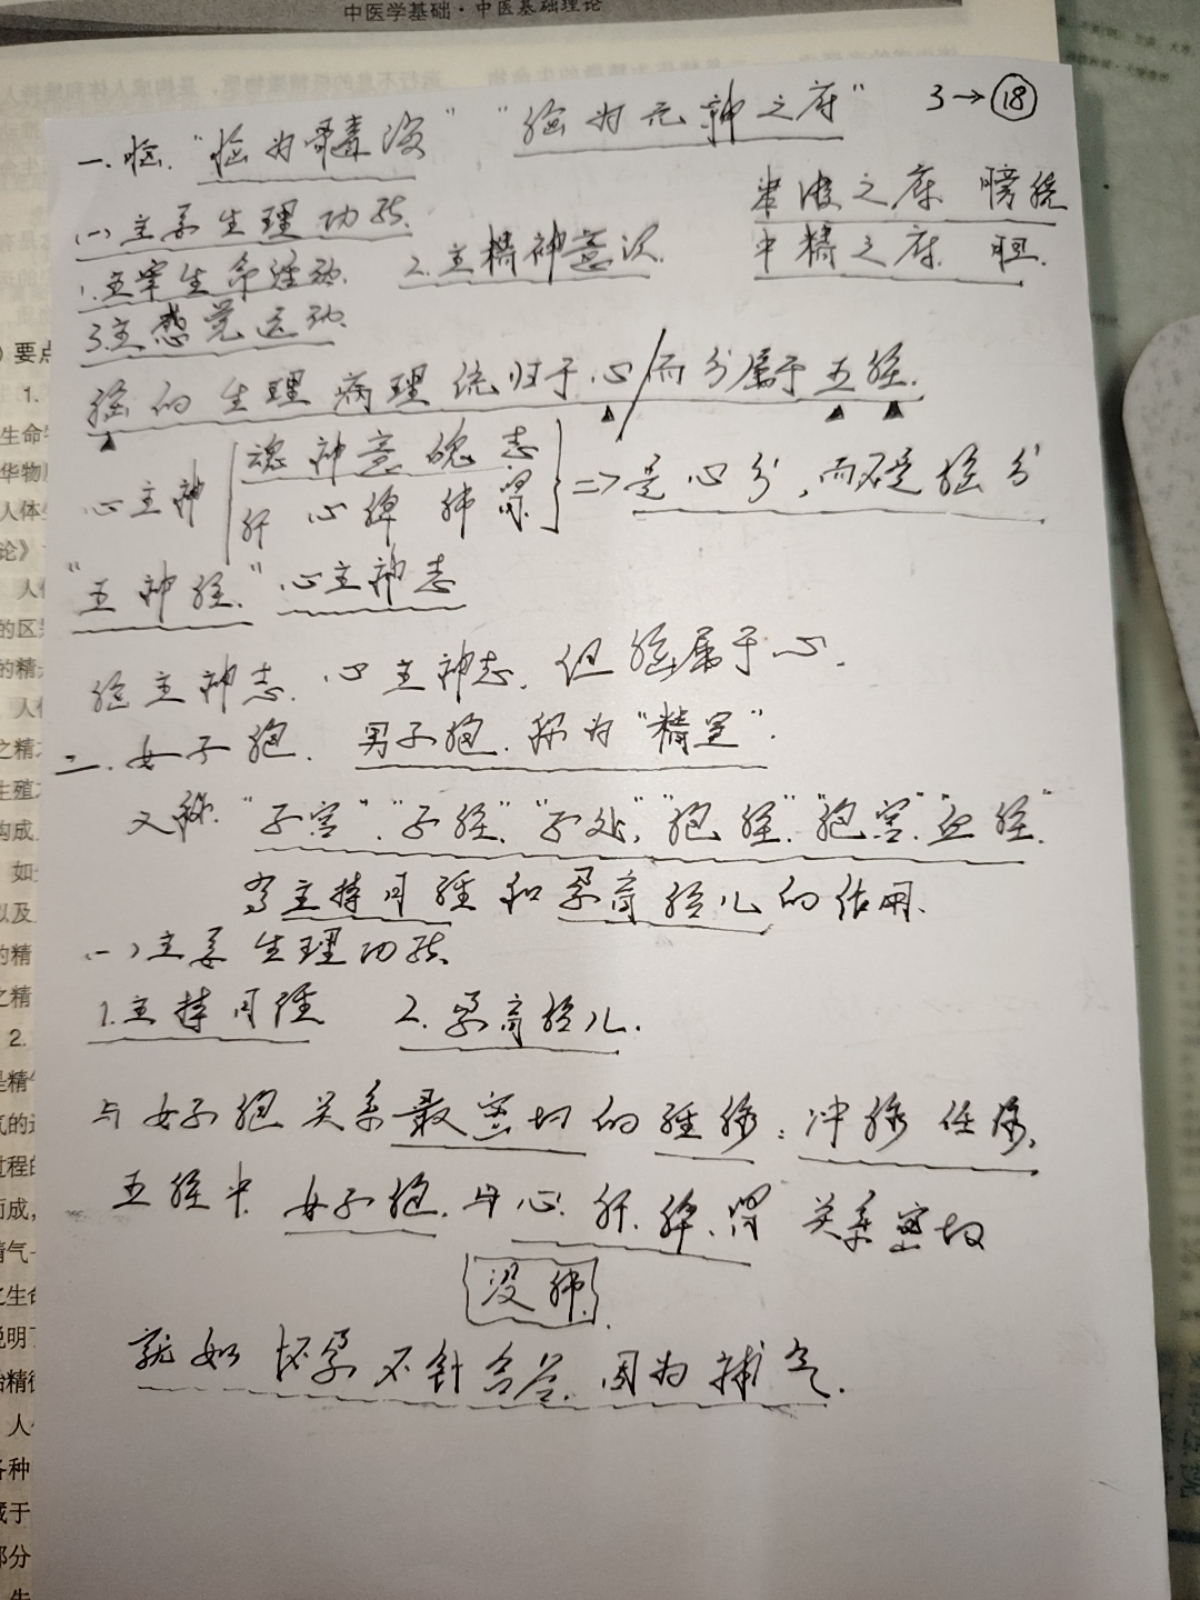 中医学基础·中医基础理论
3→⑱
一.脑.“脑为髓海” “脑为元神之府”
津液之府 膀胱
(一)主要生理功能.
中精之府. 胆.
1.主宰生命活动. 2.主精神意识.
3.主感觉运动.
脑的生理病理统归于心/而分属于五脏.
心主神 魂神意魄志
肝心脾肺肾 => 是心分,而不是脑分
“五神脏.” 心主神志
脑主神志. 心主神志. 但脑属于心.
二.女子胞. 男子胞.称为“精室”.
又称.“子宫”.“子脏”.“子处”.“胞脏”.“胞宫”.“血脏”.
有主持月经和孕育胎儿的作用.
(一)主要生理功能.
1.主持月经 2.孕育胎儿.
与女子胞关系最密切的经脉:冲脉 任脉.
五脏中.女子胞.与心.肝.脾.肾 关系密切
没肺.
就如怀孕不针合谷.因为补气.
) 要点
1.
生命
华物
人体
论》
人
的区
的精
人
之精
生殖
构成
如
以及
的精
之精
2.
是精气
气的
过程的
而成,
精气
之生命
说明
始精
人
各种
藏于
部分